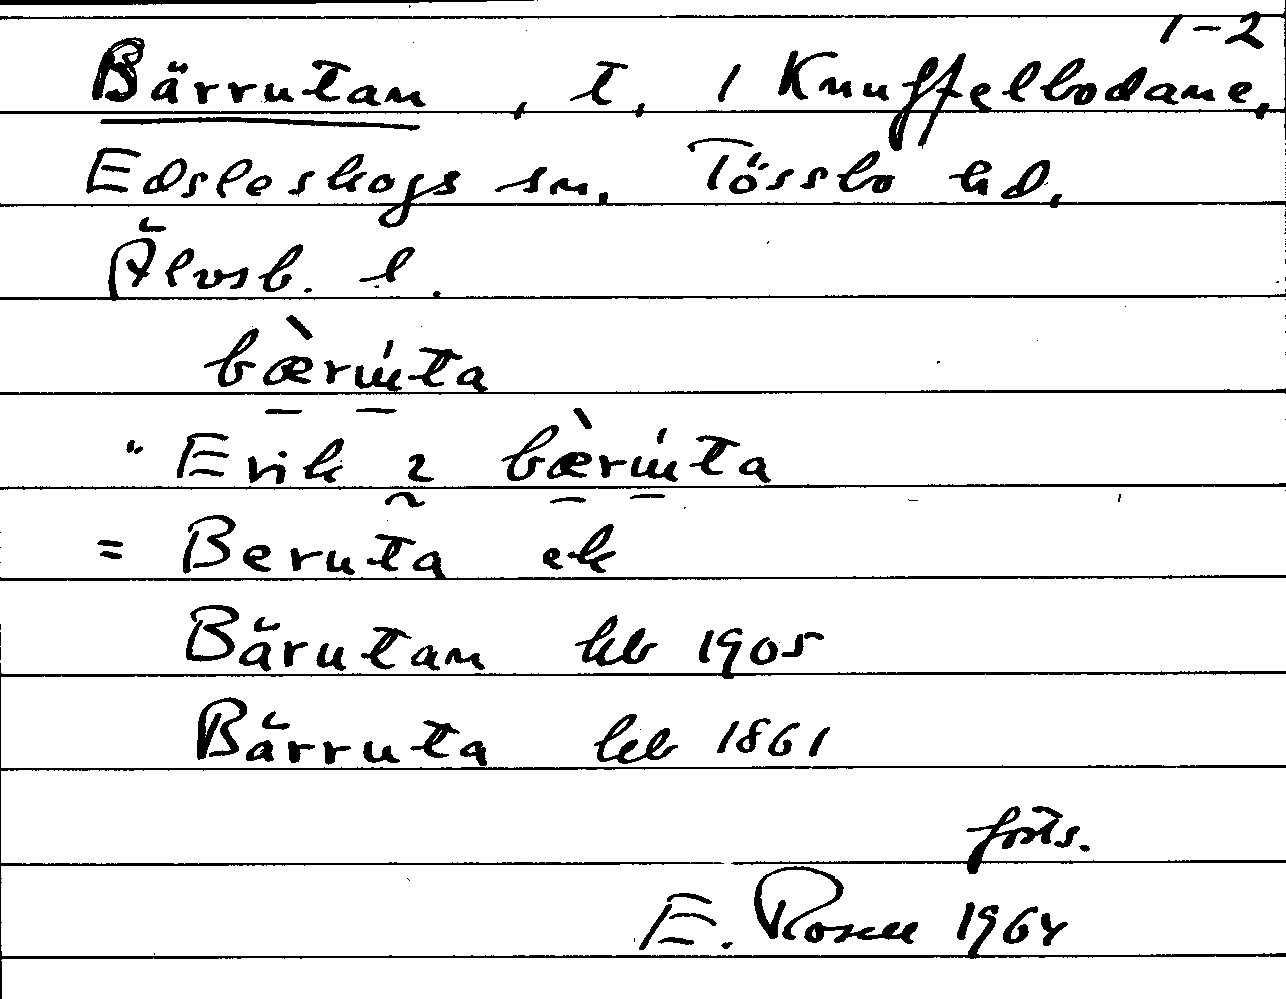 1-2
Bärrutan, t. 1 Knuffelbodane,
Edsleskogs sn, Tössbo hd,
Älvsb. l.
bæ̀rút́a
"Erik bæ̀rút́a
= Beruta ek
Bärutan kb 1905
Bärruta kb 1861
forts.
E. Rosell 1964